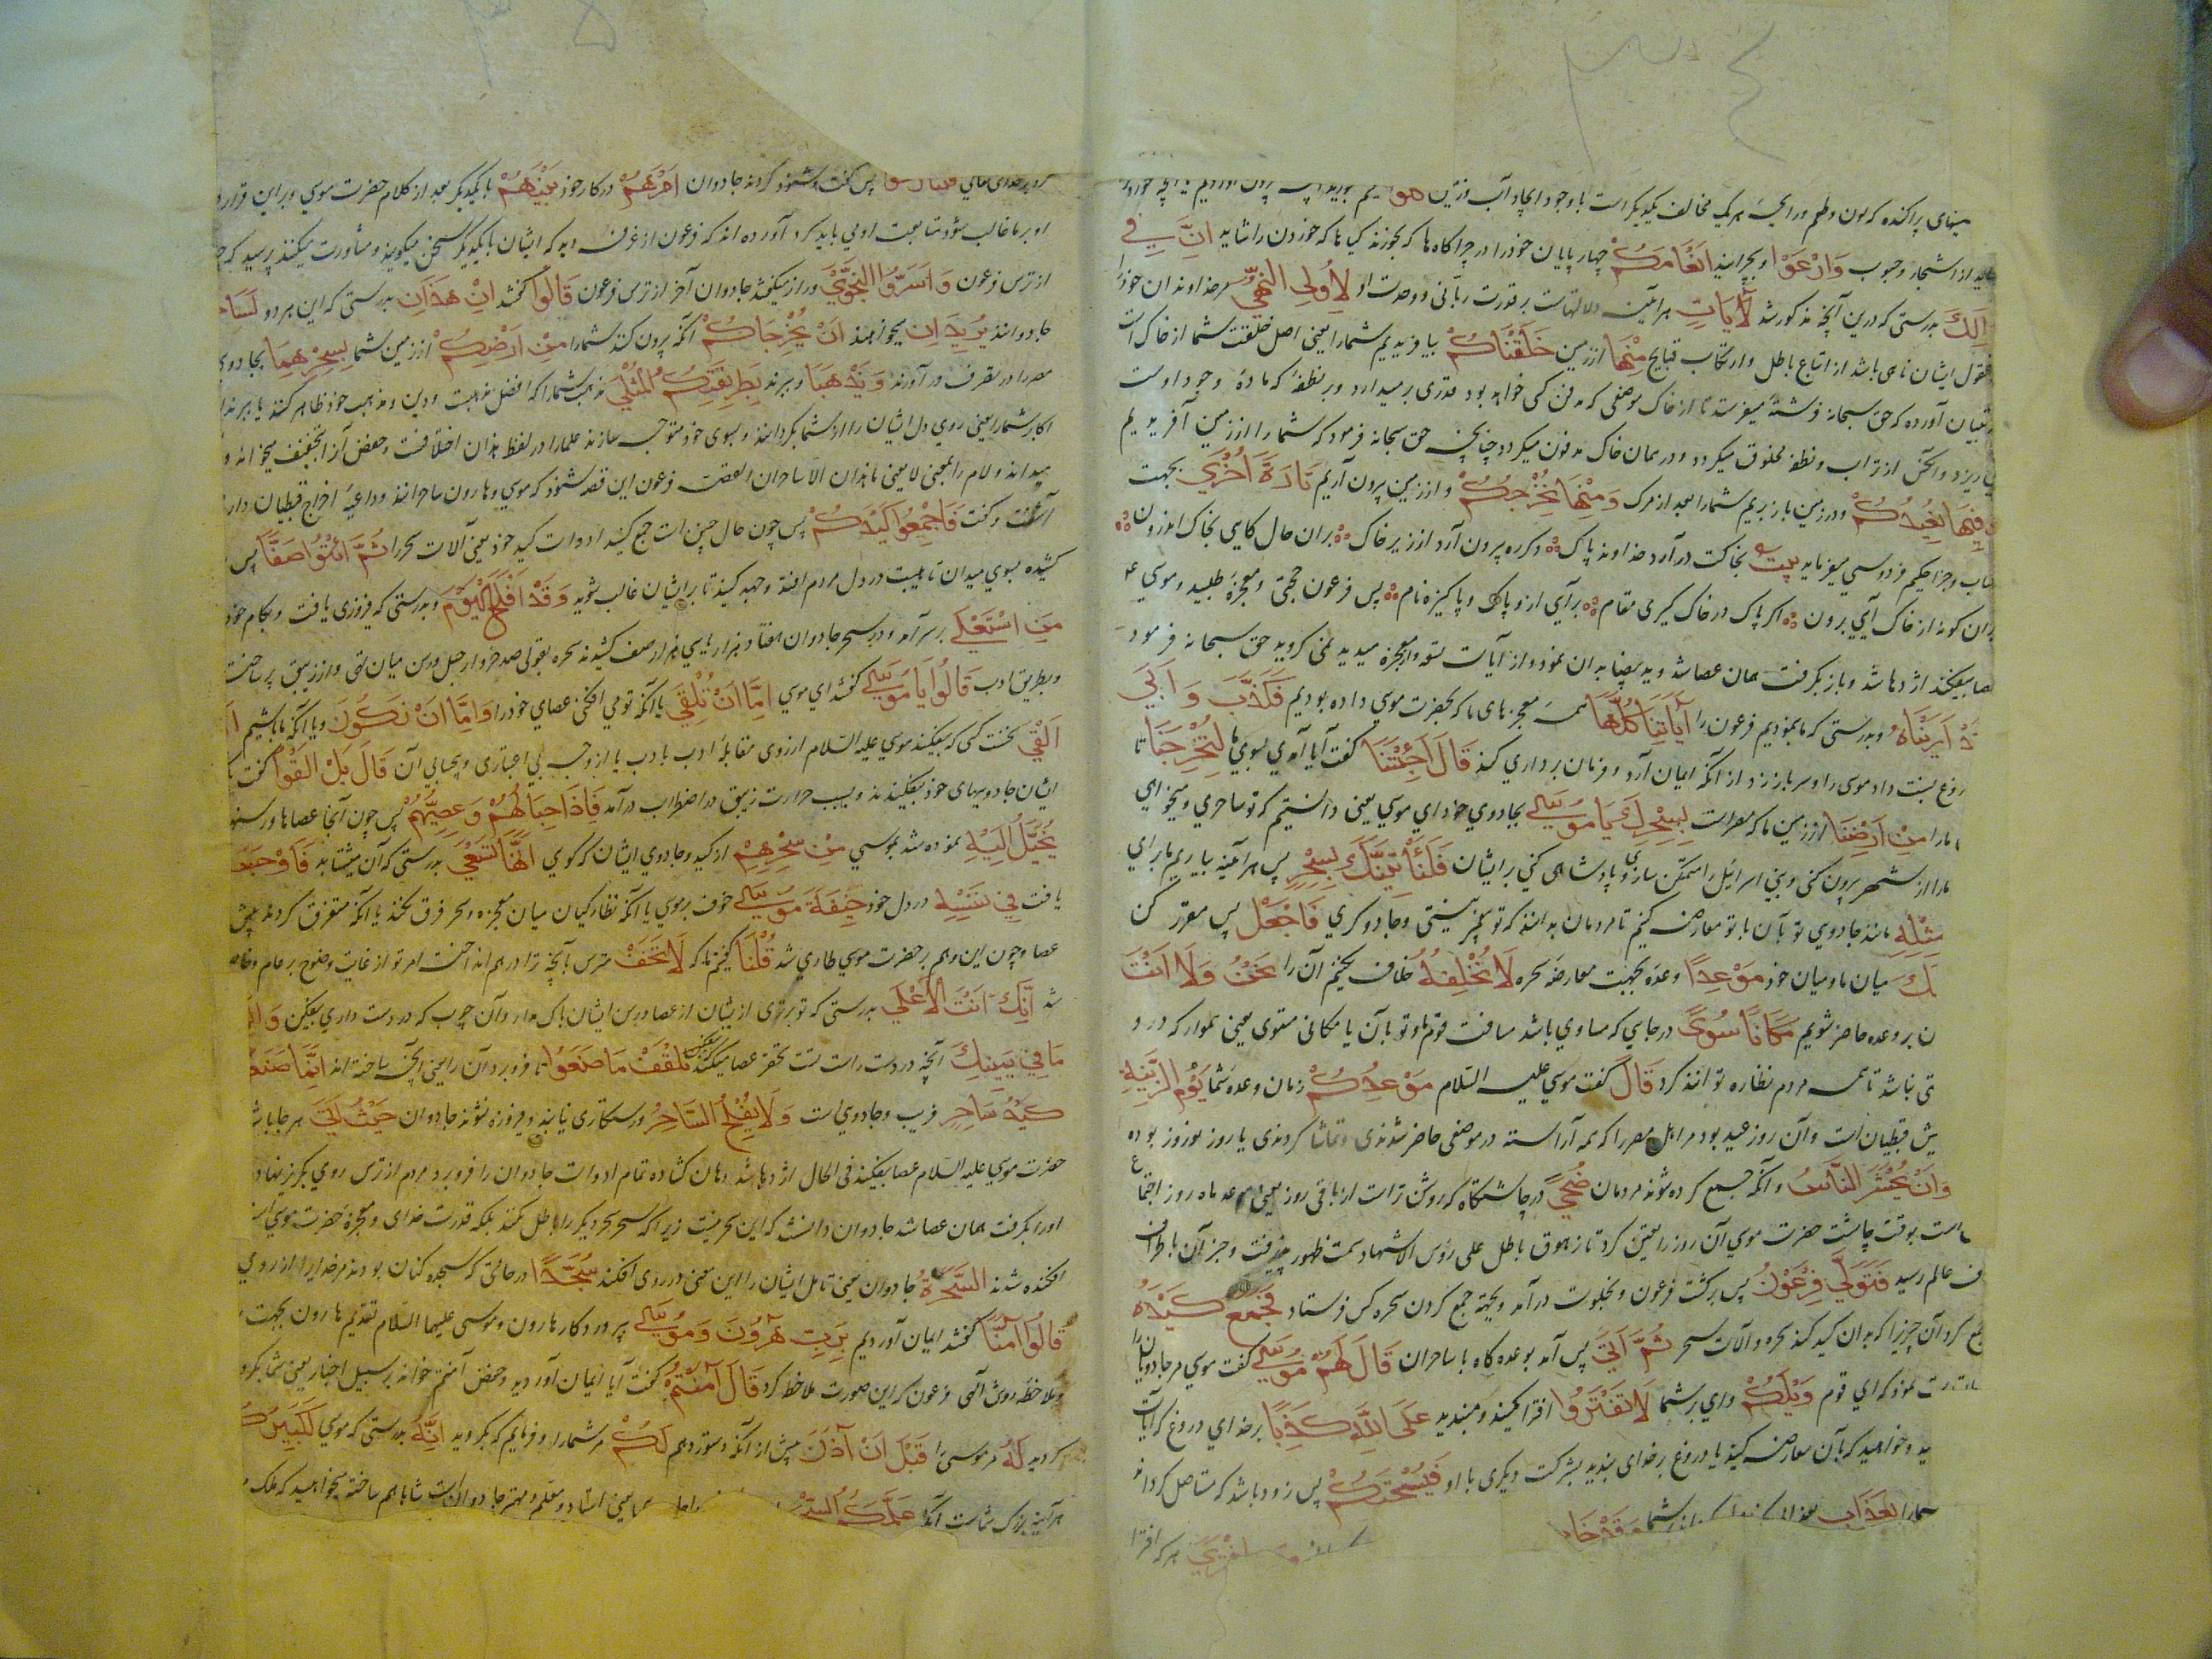 بنهای پراکنده که لون و طعم و رایحهٔ هر یک مخالف یکدیگر است با وجود ایجاد آب و زمین
از اشجار و حبوب وَارْعَوْا و بچرانید اَنْعَامَكُمْ چهار پایان خود را در چراکاه ها که بخورند کیاها که خوردن را شاید اِنَّ فِي
ذلِكَ بدرستی که درین آنچه مذکور شد لَآيَاتٍ هرآینه دلالتهاست بر قدرت ربانی و وحدت او لِاُولِي النُّهَى مر خداوندان خرد را
عقول ایشان ناهی باشد از اتباع باطل و ارتکاب قبایح مِنْهَا از زمین خَلَقْنَاكُمْ بیافریدیم شما را یعنی اصل خلقت شما از خاک است
تبیان آورده که حق سبحانه فرشتهٔ میفرستد تا از خاک موضعی که مدفن کسی خواهد بود قدری برمیدارد و بر نطفهٔ که مادهٔ وجود اوست
می ریزد و آنکس از تراب و نطفه مخلوق میکردد و در همان خاک مدفون میکردد چنانچه حق سبحانه فرمود که شما را از زمین آفریدیم
وَفِيهَا نُعِيدُكُمْ و در زمین باز بریم شما را بعد از مرک وَمِنْهَا نُخْرِجُكُمْ و از زمین بیرون آریم تَارَةً اُخْرَى بجهت
حساب و جزا حکیم فردوسی میفرماید بیت بخاکت درآرد خداوند پاک دکر ره برون آرد از زیر خاک بران حال کایی بخاک اندرون
بران کونه از خاک آیی برون اکر پاک در خاک گیری مقام برآیی ازو پاک و پاکیزه نام پس فرعون حجتی و معجزهٔ طلبید و موسی ع
عصا بیفکند اژدها شد و باز بکرفت همان عصا شد و ید بیضا بدان نمود و از آیات تسعه و معجزه میدید نمی کروید حق سبحانه فرمود
وَلَقَدْ اَرَيْنَاهُ و بدرستی که ما بنمودیم فرعون را آيَاتِنَا كُلَّهَا همه معجزهای ما که بحضرت موسی داده بودیم فَكَذَّبَ وَاَبَى
دروغ نسبت داد موسی را و سر باز زد از آنکه ایمان آرد و فرمان برداری کند قَالَ اَجِئْتَنَا گفت آیا آمدی بسوی ما لِتُخْرِجَنَا تا
ما را مِنْ اَرْضِنَا از زمین ما که مصرست بِسِحْرِكَ يَا مُوسَى بجادوی خود ای موسی یعنی دانستیم که تو ساحری و میخواهی
ما را از شهر بیرون کنی و بنی اسرائیل را متمکن سازی و پادشاهی کنی بر ایشان فَلَنَأْتِيَنَّكَ بِسِحْرٍ پس هرآینه بیاریم ما برای
مِثْلِهِ مانند جادوی تو تا بآن با تو معارضه کنیم تا مردمان بدانند که تو پیغمبر نیستی و جادو کری فَاجْعَلْ پس مقرر کن
بَيْنَكَ میان ما و میان خود مَوْعِدًا وعده بجهت معارضهٔ سحره لَا نُخْلِفُهُ خلاف نکنیم آن را نَحْنُ وَلَا اَنْتَ
بر وعده حاضر شویم مَكَانًا سُوًى در جایی که مساوی باشد مسافت قوم ما و تو بآن یا مکانی مستوی یعنی هموار که در و
نباشد تا همه مردم نظاره توانند کرد قَالَ گفت موسی علیه السلام مَوْعِدُكُمْ زمان وعدهٔ شما يَوْمُ الزِّينَةِ
قبطیان است و آن روز عید بود مر اهل مصر را که همه آراسته در موضعی حاضر شدندی و تماشا کردندی یا روز نوروز بوده
وَاَنْ يُحْشَرَ النَّاسُ و آنکه جمع کرده شوند مردمان ضُحًى در چاشتگاه که روشن تر است از باقی روز یعنی وعده ماه روز اجتماع
است بوقت چاشت حضرت موسی آن روز را تعیین کرد تا زهوق باطل علی رؤس الاشهاد سمت ظهور پذیرفت و خبر آن باطراف
عالم رسید فَتَوَلَّى فِرْعَوْنُ پس برگشت فرعون و بخلوت درآمد و بجهة جمع کردن سحره کس فرستاد فَجَمَعَ كَيْدَهُ
جمع کرد آن چیز را که بدان کید کند سحره و آلات سحر ثُمَّ اَتَى پس آمد بوعده گاه با ساحران قَالَ لَهُمْ مُوسَى گفت موسی مر جادوان را
نمود که ای قوم وَيْلَكُمْ وای بر شما لَا تَفْتَرُوا افترا مکنید و مبندید عَلَى اللهِ كَذِبًا بر خدای دروغ که آیات
و خواهید که بآن معارضه کنید یا دروغ بر خدای مبندید بشرکت دیگری با او فَيُسْحِتَكُمْ پس زود باشد که مستاصل گرداند
شما را بِعَذَابٍ وَقَدْ خَابَ
افْتَرَى هر که افترا
پس گفت و شنود کردند جادوان اَمْرَهُمْ در کار خود بَيْنَهُمْ با یکدیگر بعد از کلام حضرت موسی و بر این قرار
او بر ما غالب شود متابعت او می باید کرد آورده اند که فرعون از غرفه دید که ایشان با یکدیگر سخن میگویند و مشاورت میکنند پرسید که
از ترس فرعون وَاَسَرُّوا النَّجْوَى و راز میگفتند جادوان آخر از ترس فرعون قَالُوا گفتند اِنْ هَذَانِ بدرستی که این هر دو لَسَاحِرَانِ
جادوانند يُرِيدَانِ میخواهند اَنْ يُخْرِجَاكُمْ آنکه بیرون کنند شما را مِنْ اَرْضِكُمْ از زمین شما بِسِحْرِهِمَا بجادوی
مصر را در تصرف درآورند وَيَذْهَبَا و ببرند بِطَرِيقَتِكُمُ الْمُثْلَى مذهب شما را که افضل مذاهبست و دین و مذهب خود ظاهر کنند یا ببرند
اکابر شما را یعنی روی دل ایشان را از شما بگردانند و بسوی خود متوجه سازند علما را در لفظ هذان اختلافست و حفص آن را بتخفیف میخواند و
میداند و لام را بمعنی الا یعنی ما هذان الا ساحران القصه فرعون این قصه شنود که موسی و هارون ساحرانند و داعیهٔ اخراج قبطیان دارند
و گفت فَاَجْمِعُوا كَيْدَكُمْ پس چون حال چنین است جمع کنید ادوات کید خود یعنی آلات سحر را ثُمَّ ائْتُوا صَفًّا پس
کشیده بسوی میدان تا هیبت در دل مردم افتد و جهد کنید تا بر ایشان غالب شوید وَقَدْ اَفْلَحَ الْيَوْمَ و بدرستی که فیروزی یافت و بکام خود
مَنِ اسْتَعْلَى بر سر آمد و در سحر جادوان هفتاد هزار صف کشیدند سحره بقولی صد خروار حبل و رسن میان تهی و از زیبق پر ساخته
و بطریق ادب قَالُوا يَا مُوسَى گفتند ای موسی اِمَّا اَنْ تُلْقِيَ یا آنکه تو می افکنی عصای خود را وَاِمَّا اَنْ نَكُونَ و یا آنکه ما باشیم
اَلْقَى نخست کسی که بیفکند موسی علیه السلام از روی مقابلهٔ ادب بادب یا از وجه بی اعتباری و بیحسابی آن قَالَ بَلْ اَلْقُوا گفت
ایشان جادوییهای خود بیفکنیدند و بسبب حرارت زیبق در اضطراب درآمد فَاِذَا حِبَالُهُمْ وَعِصِيُّهُمْ پس چون آنجا عصاها و رسنها
يُخَيَّلُ اِلَيْهِ نموده شد بموسی مِنْ سِحْرِهِمْ از کید و جادوی ایشان که گوی اَنَّهَا تَسْعَى بدرستی که آن میشتابد فَاَوْجَسَ
یافت فِي نَفْسِهِ در دل خود خِيفَةً مُوسَى خوف موسی یا آنکه نظارگیان میان معجزه و سحر فرق نکنند یا آنکه متفرق گردند پیش
عصا و چون این وهم بر حضرت موسی طاری شد قُلْنَا گفتیم ما که لَا تَخَفْ مترس بآنچه ترا در وهم انداخت امر تو از غایت وضوح بر عام و خاص
شد اِنَّكَ اَنْتَ الْاَعْلَى بدرستی که تو برتری از یشان از عصا و رسن ایشان باک مدار و آن چوب که در دست داری بیفکن وَاَلْقِ
مَا فِي يَمِينِكَ آنچه در دست راست تست تحقیر عصا میکند تَلْقَفْ مَا صَنَعُوا تا فرو برد آن را یعنی آنچه ساخته اند اِنَّمَا صَنَعُوا
كَيْدُ سَاحِرٍ فریب و جادوی است وَلَا يُفْلِحُ السَّاحِرُ و رستگاری نیابند و فیروز نشوند جادوان حَيْثُ اَتَى هر جا باشند
حضرت موسی علیه السلام عصا بیفکند فی الحال اژدها شد دهان گشاده تمام ادوات جادوان را فرو برد مردم از ترس روی بگریز نهادند
او را بکرفت همان عصا شد جادوان دانستند که این سحر نیست زیرا که سحر سحر دیگر را باطل نکند بلکه قدرت خدای و معجزهٔ حضرت موسی است
افکنده شدند السَّحَرَةُ جادوان یعنی تامل ایشان را این معنی در روی افکند سُجَّدًا در حالتی که سجده کنان بودند مر خدای را از روی
قَالُوا آمَنَّا گفتند ایمان آوردیم بِرَبِّ هَرُونَ وَمُوسَى پروردگار هارون و موسی علیهما السلام تقدیم هارون بجهت
و ملاحظهٔ روش آلهی فرعون که این صورت ملاحظه کرد قَالَ آمَنْتُمْ گفت آیا ایمان آوردید و حفص آمنتم خوانده بر سبیل اخبار یعنی شما بگرو
کردید لَهُ مر موسی را قَبْلَ اَنْ آذَنَ پیش از آنکه دستور دهم لَكُمْ مر شما را و فرمایم که بگروید اِنَّهُ بدرستی که موسی لَكَبِيرُكُمْ
هرآینه بزرک شماست آنکه عَلَّمَكُمُ السِّحْرَ یعنی استاد و معلم و مهتر جادوان است شما با هم ساخته میخواهید که ملک